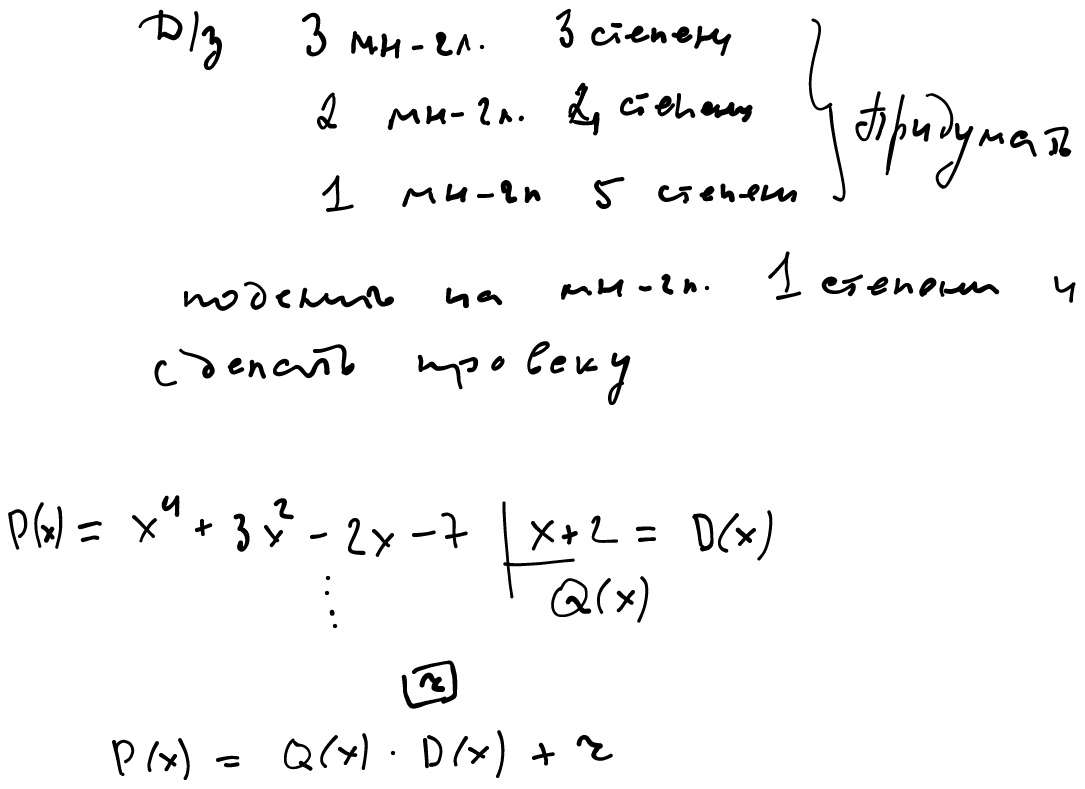 Д/з 3 мн-гл. 3 степени
2 мн-гл. 2 степени
1 мн-гл 5 степени
Придумать
поделить на мн-гл. 1 степени и
сделать провеку
P(x) = x⁴ + 3x² - 2x - 7 | x+2 = D(x)
Q(x)
r
P(x) = Q(x) · D(x) + r